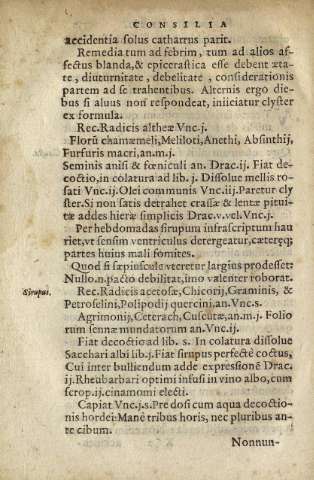 CONSILIA
accidentia solus catharrus parit.
Remedia tum ad febrim, tum ad alios af-
fectus blanda, & epicerastica esse debent æta-
te, diuturnitate, debelitate, considerationis
partem ad se trahentibus. Alternis ergo die-
bus si aluus non respondeat, iniiciatur clyster
ex formula.
Rec. Radicis altheæ Vnc.j.
Florū chamæmeli, Meliloti, Anethi, Absinthij,
Furfuris macri, an.m.j.
Seminis anisi & fœniculi an. Drac.ij. Fiat de-
coctio, in colatura ad lib.j. Dissolue mellis ro-
sati Vnc.ij. Olei communis Vnc.iij. Paretur cly
ster. Si non satis detrahet crassæ & lentæ pitui-
tæ addes hieræ simplicis Drac.v. vel Vnc.j.
Per hebdomadas sirupum infrascriptum hau
riet, vt sensim ventriculus detergeatur, cæterq;
partes huius mali fomites.
Quod si sæpiuscule vteretur largius prodesset
Nullo.n. pacto debilitat, imo valenter roborat.
Sirupus.
Rec. Radicis acetosæ, Chicorij, Graminis, &
Petroselini, Polipodij quercini, an. Vnc.s.
Agrimonij, Ceterach, Cuscutæ, an.m.j. Folio
rum sennæ mundatorum an. Vnc.ij.
Fiat decoctio ad lib.s. In colatura dissolue
Sacchari albi lib.j. Fiat sirupus perfectè coctus,
Cui inter bulliendum adde expressionē Drac.
ij. Rheubarbari optimi infusi in vino albo, cum
scrop.ij. cinamomi electi.
Capiat Vnc.j.s. Pre dosi cum aqua decoctio-
nis hordei: Manè tribus horis, nec pluribus an-
te cibum.
Nonnun-